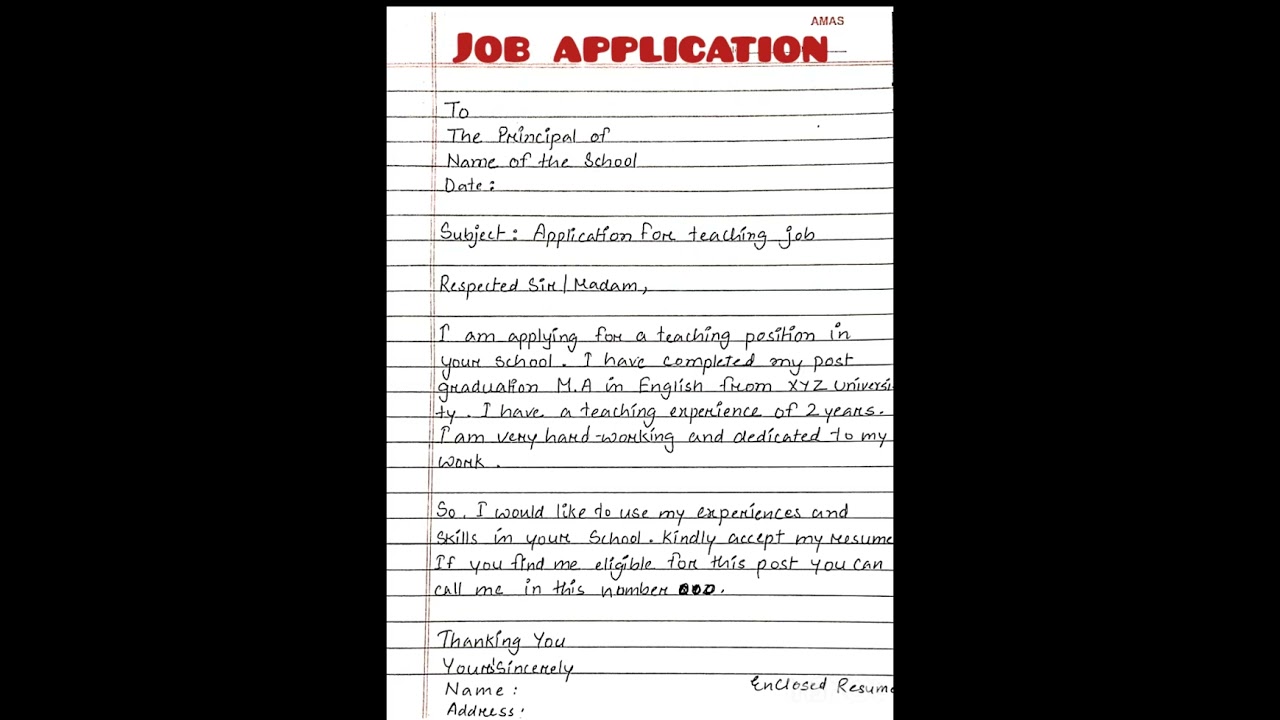 AMAS
JOB APPLICATION
To
The Principal of
Name of the School
Date:
Subject: Application for teaching job
Respected Sir/Madam,
I am applying for a teaching position in
your school. I have completed my post
graduation M.A in English from XYZ universi
ty. I have a teaching experience of 2 years.
I am very hard-working and dedicated to my
work.
So, I would like to use my experiences and
skills in your School. Kindly accept my resume
If you find me eligible for this post you can
call me in this number 000.
Thanking You
Your's Sincerely
Name:
Enclosed Resume
Address: